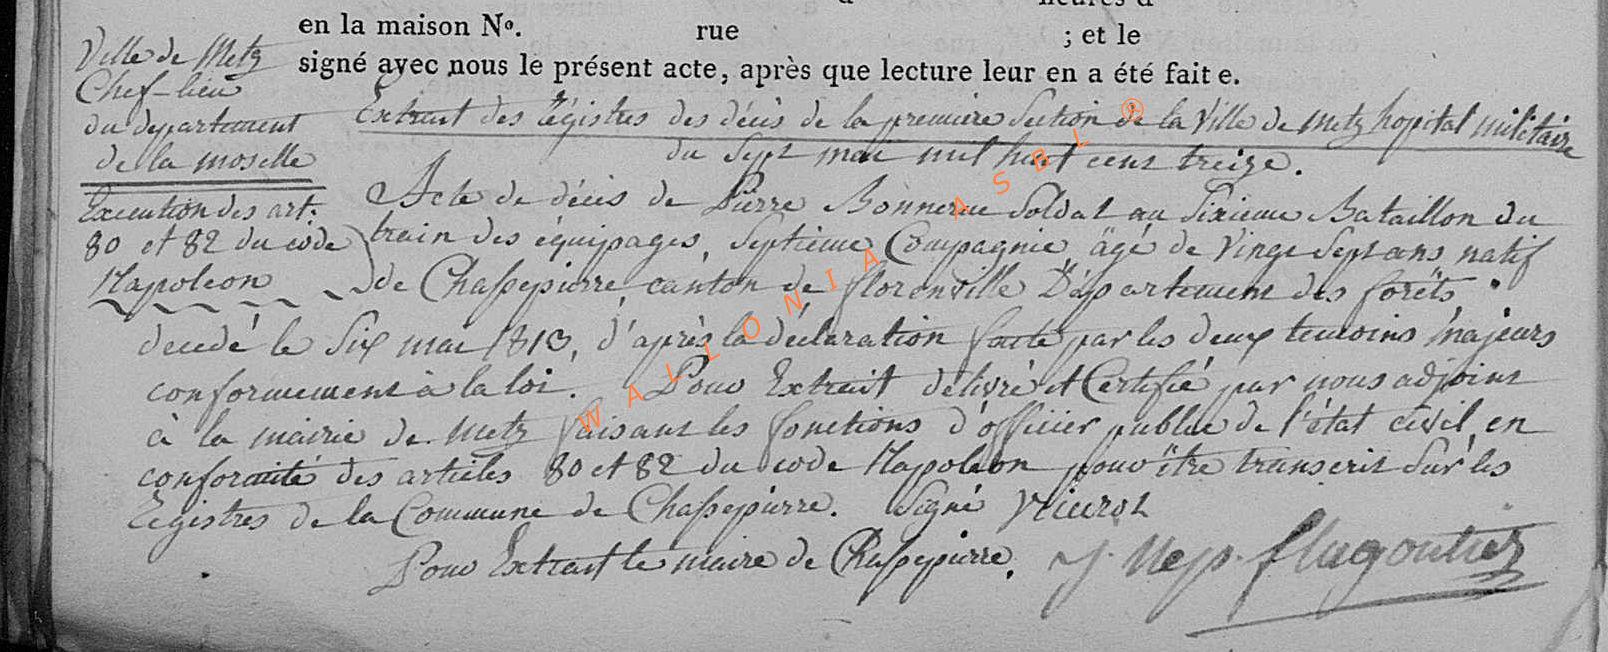 heures d
en la maison Nº. rue ; et le
signé avec nous le présent acte, après que lecture leur en a été faite.
Ville de Metz
Chef-lieu
du departement
de la moselle
Execution des art.
80 et 82 du code
Napoleon
Extrait des Régistres des décès de la premiere Section de la Ville de Metz hopital militaire
du Sept mai mil huit cent treize.
Acte de décès de Pierre Bonnerue Soldat au Sixieme Bataillon du
train des équipages, Septieme Compagnie, âgé de Vingt Sept ans natif
de Chassepierre, canton de florenville Département des forêts,
decedé le Six mai 1813, d'après la déclaration faite par les deux temoins majeurs
conformement à la loi. Pour Extrait delivré et Certifié par nous adjoint
à la mairie de Metz faisant les fonctions d'officier public de l'état civil en
conformité des articles 80 et 82 du code Napoleon pour être transcrit Sur les
Régistres de la Commune de Chassepierre. Signé
Pour Extrait le maire de Chassepierre. J. Nep.
WALLONIA ASBL ®